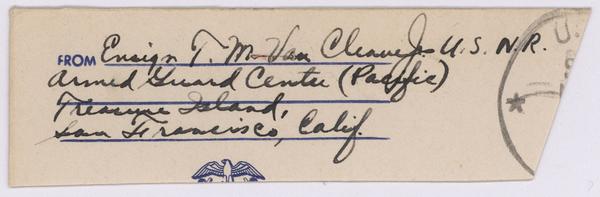 FROM Ensign T. M. Van Cleave Jr. U.S.N.R.
Armed Guard Centre (Pacific)
Treasure Island,
San Francisco, Calif.
U.S.